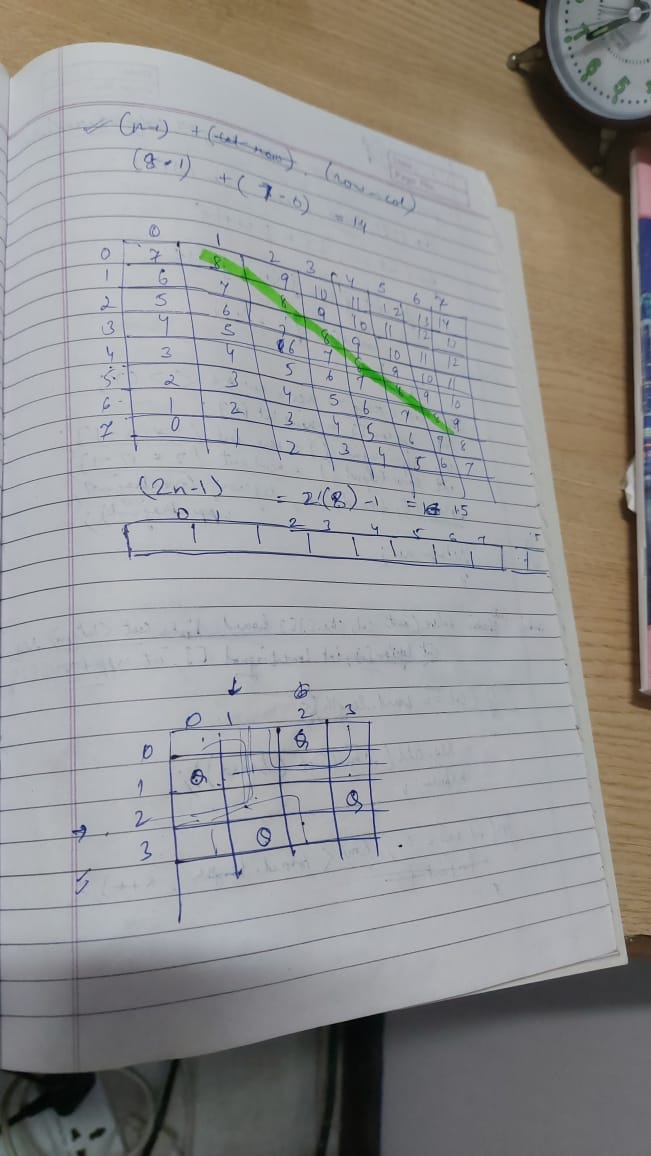 (n-1) + (col-row), (row-col)
(8-1) + (7-0) = 14
0 1 2 3 4 5 6 7
0 7 8 9 10 11 12 13 14
1 6 7 8 9 10 11 12 13
2 5 6 7 8 9 10 11 12
3 4 5 6 7 8 9 10 11
4 3 4 5 6 7 8 9 10
5 2 3 4 5 6 7 8 9
6 1 2 3 4 5 6 7 8
7 0 1 2 3 4 5 6 7
(2n-1) = 2(8)-1 = 15
0 1 2 3 4 5 6 7 15
0 1 2 3
0 Q
1 Q
2 Q
3 Q